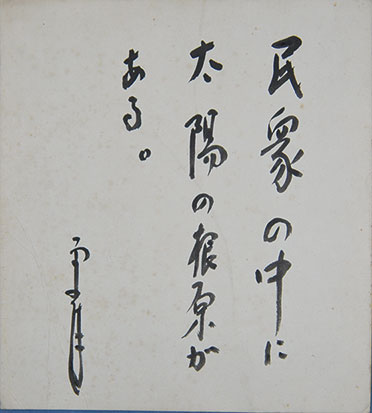 民衆の中に
太陽の根原が
ある。